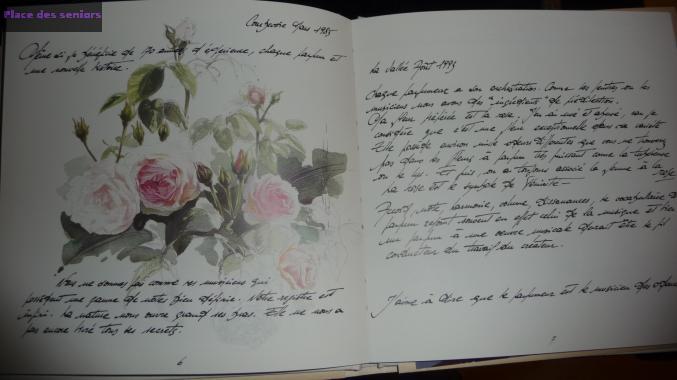 Place des seniors
Courbevoie Mars 1985
Même si je bénéficie de 70 années d'expérience, chaque parfum est
une nouvelle histoire.
Nous ne sommes pas comme ces musiciens qui
possèdent une gamme de notes bien définie. Notre registre est
infini. La nature nous ouvre grand ses bras. Elle ne nous a
pas encore livré tous ses secrets.
6
La Vallée Août 1993
Chaque parfumeur a son orchestration. Comme les peintres ou les
musiciens nous avons des "ingrédients" de prédilection.
Ma fleur préférée est la rose. J'en ai usé et abusé, car je
considère que c'est une fleur exceptionnelle dans sa variété
Elle possède environ mille odeurs différentes que vous ne trouverez
pas dans les fleurs à parfum très puissant comme la tubéreuse
ou le lys. Et puis, on a toujours associé la femme à la rose
La rose est le symbole de féminité -
Accord, note, harmonie, volume, dissonances, le vocabulaire du
parfum rejoint souvent en effet celui de la musique et bien
un parfum à une oeuvre musicale devrait être le fil
conducteur du travail du créateur.
J'aime à dire que le parfumeur est le musicien des odeurs
7